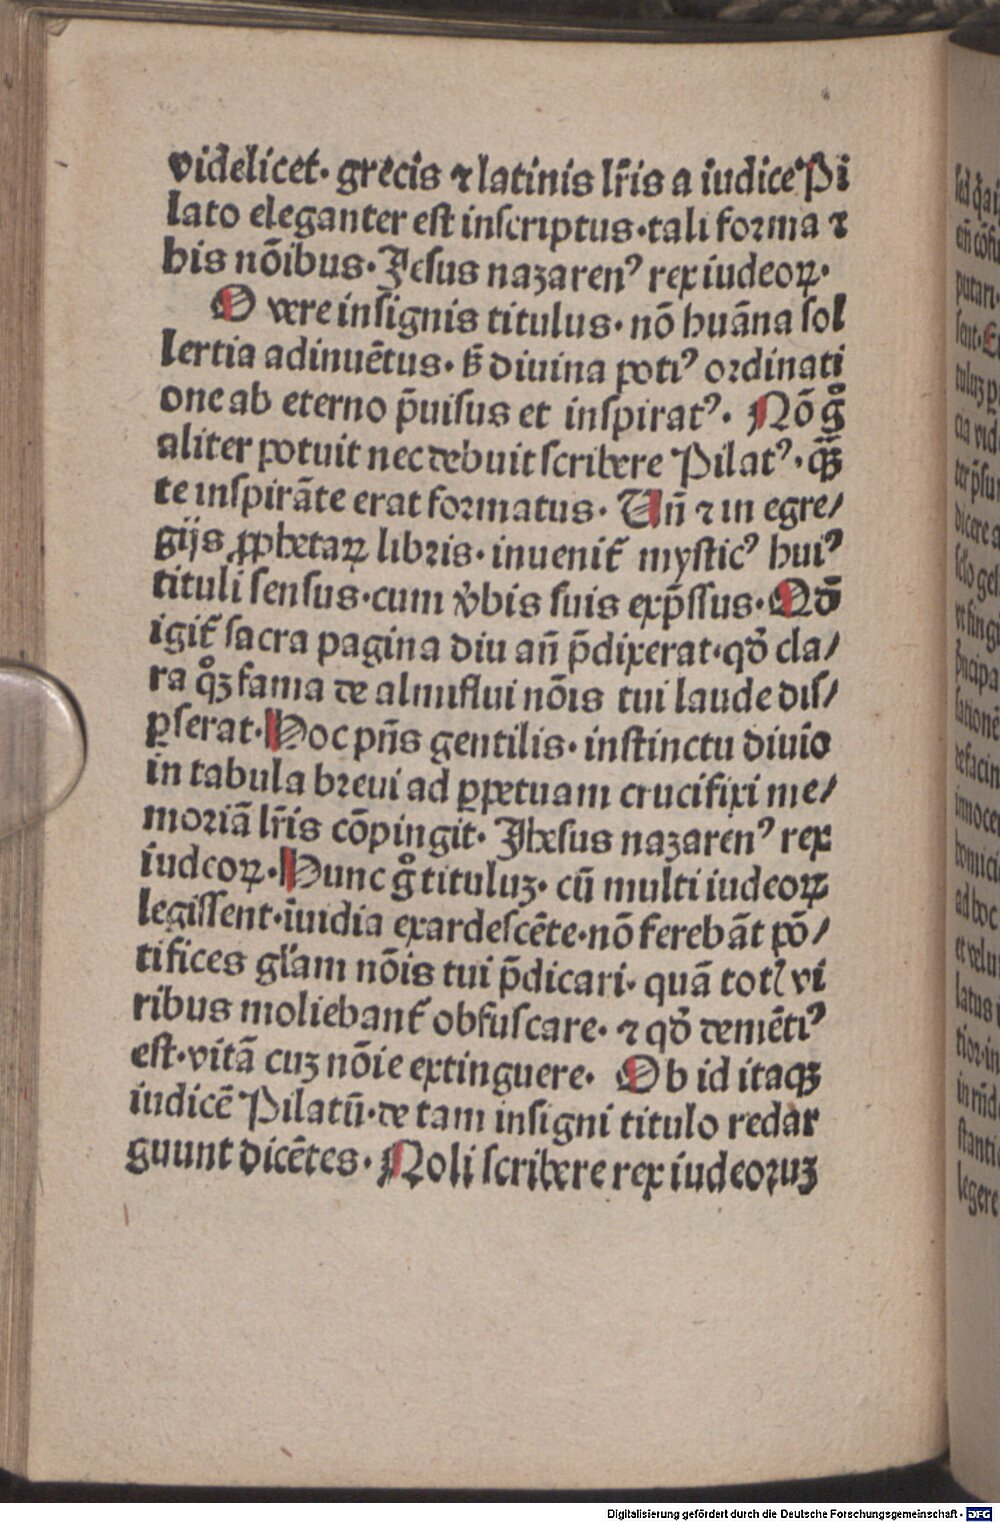 videlicet· grecis ⁊ latinis lr̄is a iudice Pi
lato eleganter est inscriptus·tali forma ⁊
his nōibus·Jesus nazarenꝰ rex iudeoꝝ·
O vere insignis titulus· nō huāna sol
lertia adinuētus· sꝫ diuina potiꝰ ordinati
one ab eterno p̄uisus et inspiratꝰ· Nō gͦ
aliter potuit nec debuit scribere Pilatꝰ· qᷓꝫ
te inspirāte erat formatus· Un̄ ⁊ in egre/
gijs ꝓphetaꝝ libris· inuenit᷑ mysticꝰ huiꝰ
tituli sensus·cum v̓bis suis exp̄ssus· Qd̄
igit᷑ sacra pagina diu an̄ p̄dixerat·qd̓ cla/
ra qͦꝫ fama de almiflui nōis tui laude dis/
ꝑserat· Hoc pn̄s gentilis· instinctu diuīo
in tabula breui ad ꝑpetuam crucifixi me/
moriā lr̄is cōpingit· Jhesus nazarenꝰ rex
iudeoꝝ· Hunc gͦ tituluꝫ· cū multi iudeoꝝ
legissent·īuidia exardescēte·nō ferebāt pō/
tifices gl̄am nōis tui p̄dicari· quā totꝭ vi
ribus moliebant᷑ obfuscare· ⁊ qd̓ demētiꝰ
est·vitā cuꝫ nōie extinguere· Ob id itaqꝫ
iudicē Pilatū·de tam insigni titulo redar
guunt dicētes· Noli scribere rex iudeoruꝫ
Digitalisierung gefördert durch die Deutsche Forschungsgemeinschaft - DFG